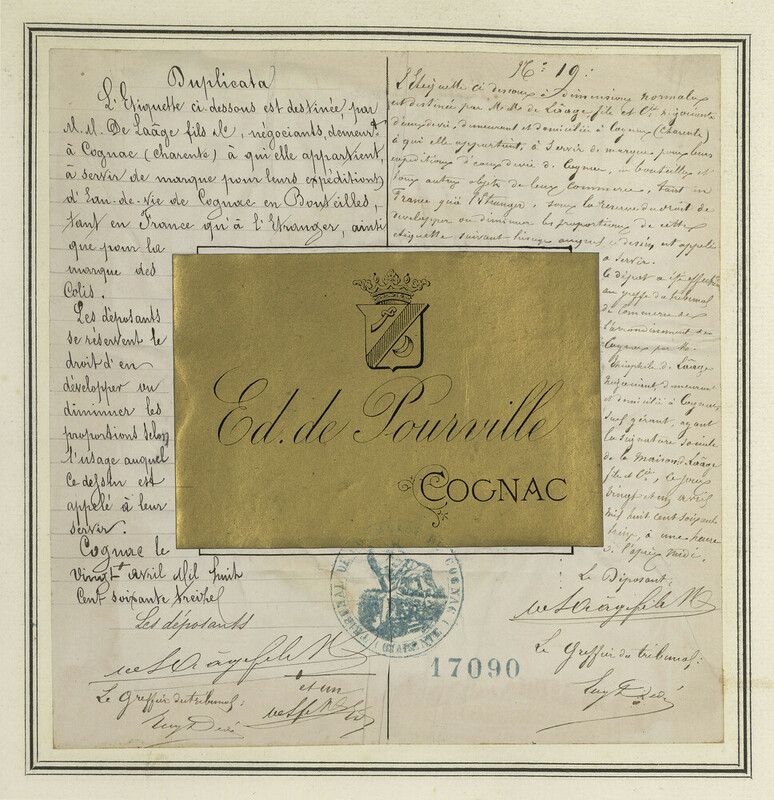 Duplicata
L'Etiquette ci-dessous est destinée, par
M.M. De Laâge fils &c, négociants, demeurt
à Cognac (Charente) à qui elle appartient,
à servir de marque pour leurs expéditions
d'Eau-de-vie de Cognac en Bouteilles,
tant en France qu'à l'Etranger, ainsi
que pour la
marque des
Colis.
Les déposants
se réservent le
droit d'en
développer ou
diminuer les
proportions selon
l'usage auquel
ce dessin est
appelé à leur
servir.
Cognac le
vingt avril Mil huit
Cent soixante treize
Les déposants
Le Greffier du tribunal:
No 19:
L'Etiquette ci dessous à dimensions normales
est destinée par M.M. de Laâge fils et Cie négociants
d'eaux de vie, demeurant et domiciliés à Cognac (Charente)
à qui elle appartient, à servir de marque pour leurs
expéditions d'eaux de vie de Cognac, en bouteilles et
tous autres objets de leur commerce, tant en
France qu'à l'Etranger, sous la réserve du droit de
développer ou diminuer les proportions de cette
étiquette suivant l'usage auquel ce dessin est appelé
à servir.
Le dépôt a été effectué
au greffe du tribunal
de Commerce de
l'arrondissement de
Cognac par Mr
Théophile de Laâge
négociant demeurant
et domicilié à Cognac,
gérant, ayant
la signature sociale
de la maison de Laâge
fils et Cie, ce jour
vingt et un avril
mil huit cent soixante
treize, à une heure
de l'après midi.
Le Déposant,
Le Greffier du tribunal:
Ed. de Pourville
COGNAC
TRIBUNAL DE COGNAC
(CHARENTE)
17090